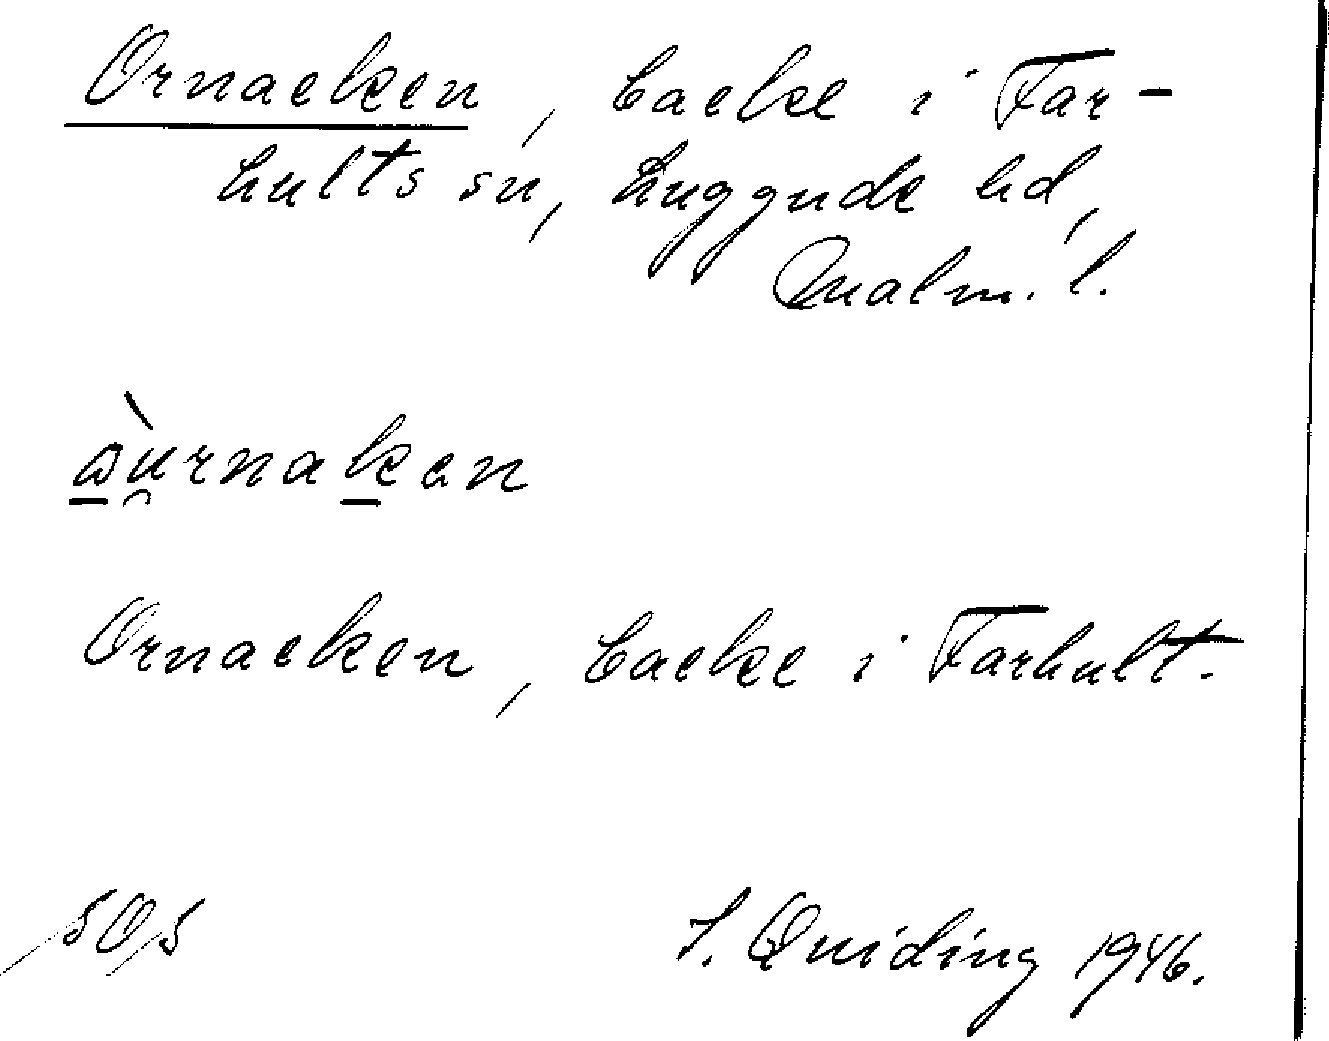 Ornacken, backe i Far-
hults sn, Luggude hd,
Malm. l.
ɷ̀urnakən
Ornacken, backe i Farhult.
505
S. Quiding 1946.